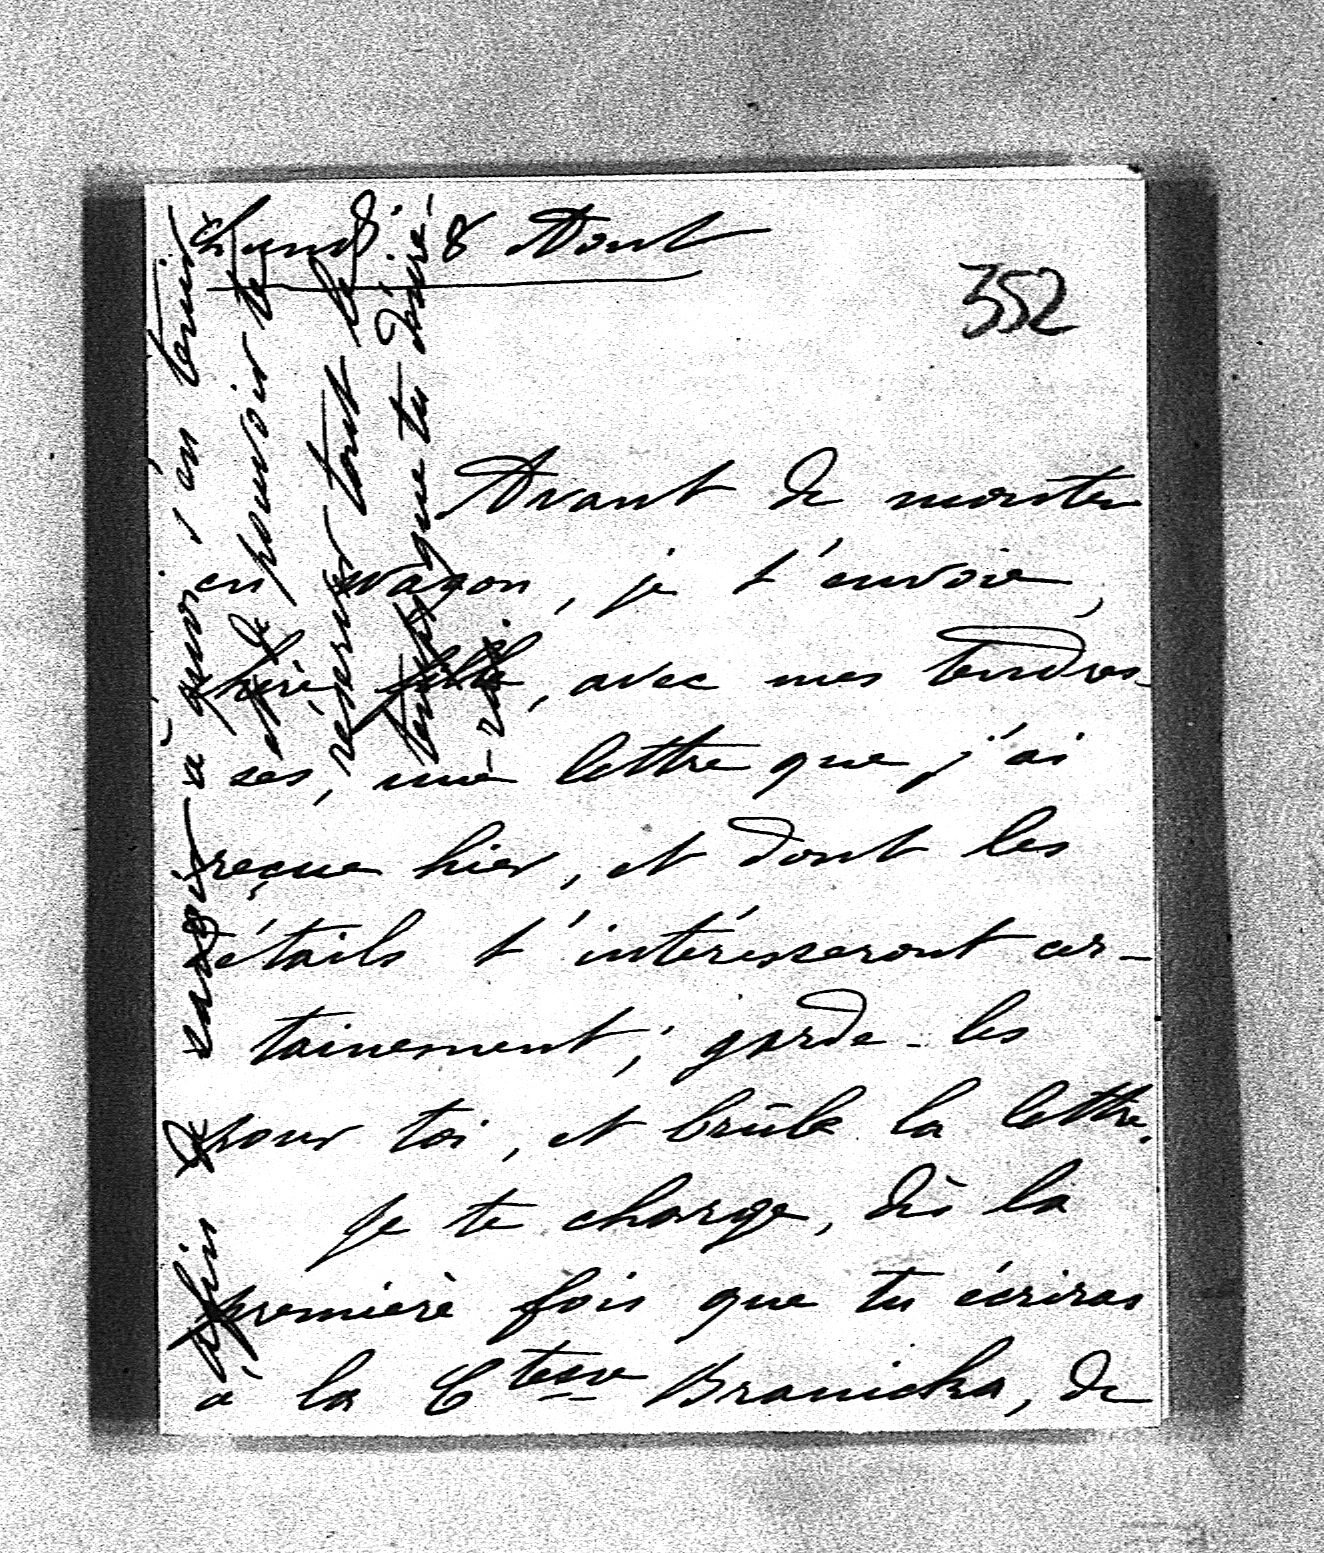 Lundi 8 Aout
352
Avant de monter
en wagon, je t'envoie,
chère fille, avec mes tendres-
ses, une lettre que j'ai
reçue hier, et dont les
détails t'intéresseront cer-
tainement; garde-les
pour toi, et brûle la lettre.
Je te charge, dès la
première fois que tu écriras
à la Ctesse Branicka, de
afin de savoir à quoi s'en tenir
et de pouvoir te
réserver tout le
temps que tu désiré-
rais.